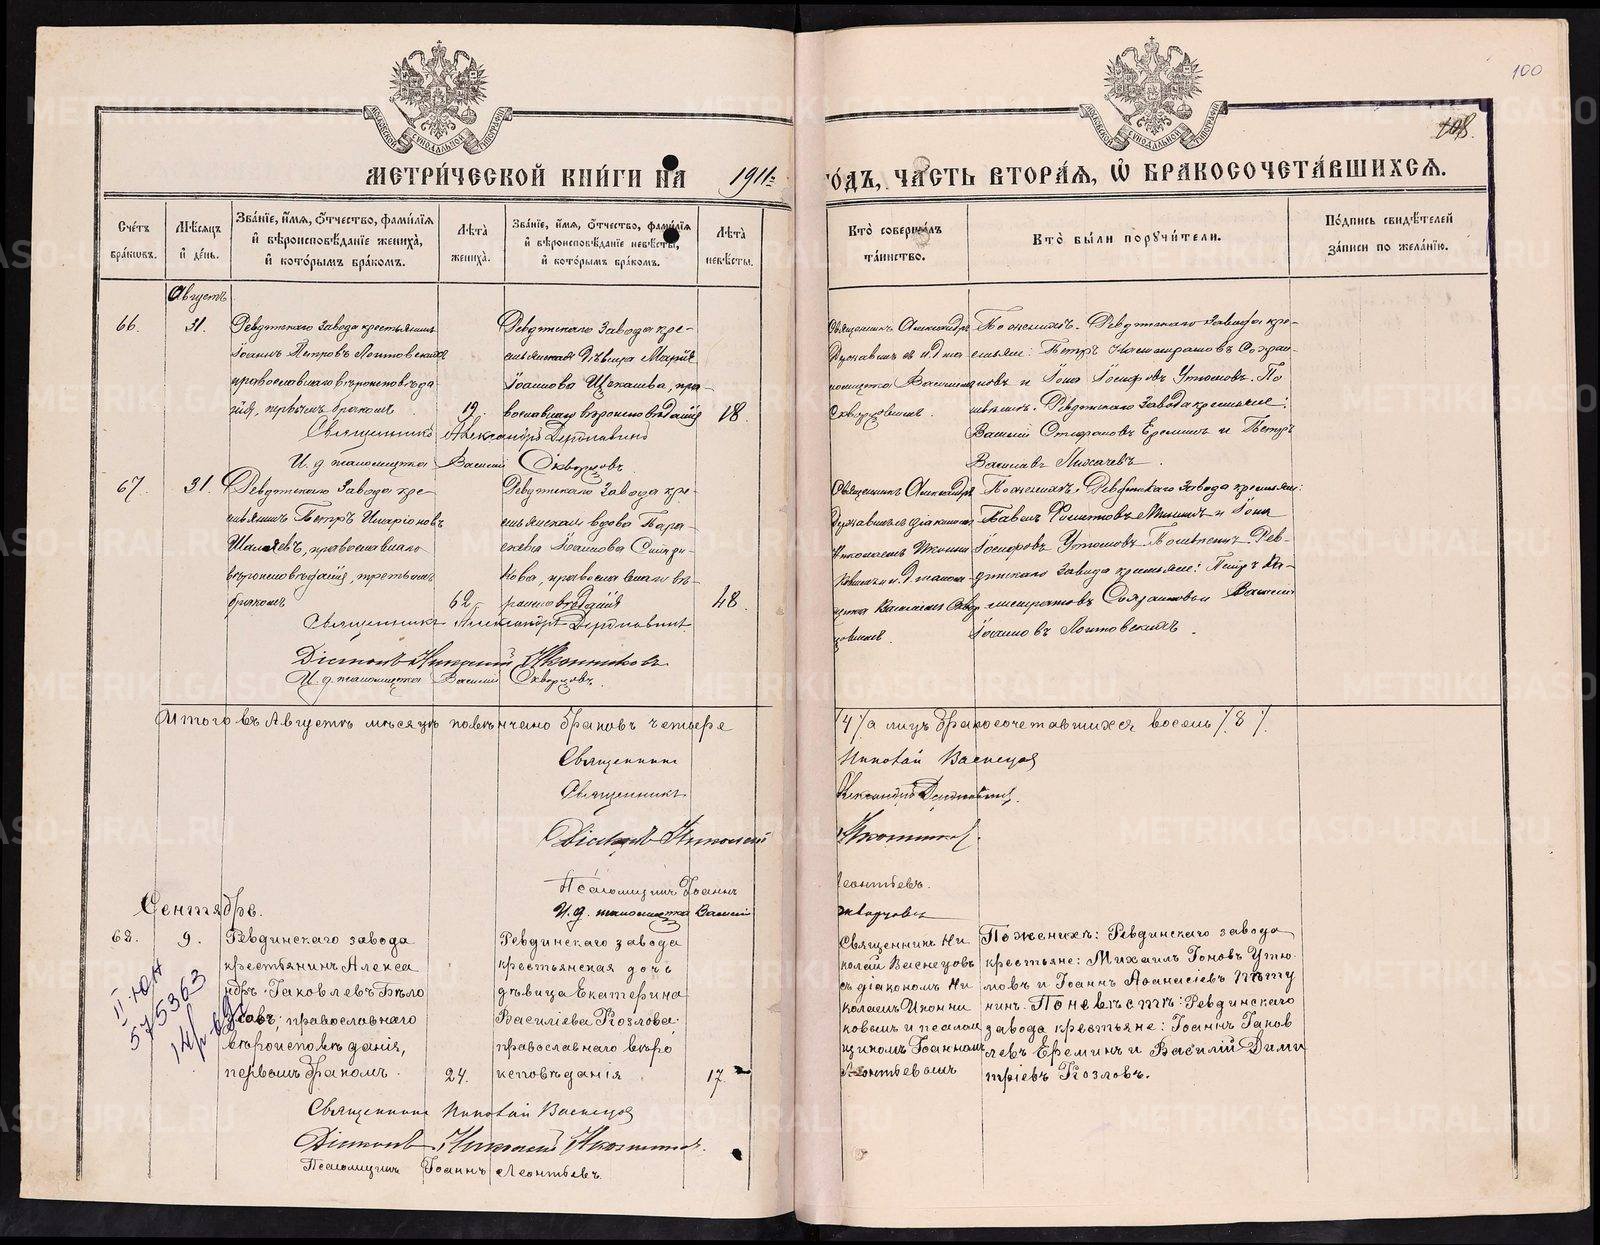 100
108.
МЕТРИ́ЧЕСКОЙ КНИ́ГИ НА 1911 го́дъ, ча́сть втора́я, ѡ̓ бракосочета́вшихся.
Сче́тъ бра́кωвъ.
Мѣ́сяцъ и҆ де́нь.
Зва́нїе, и҆́мя, ѻ҆́тчество, фами́лїя и҆ вѣроисповѣ́данїе жениха̀, и҆ кото́рымъ бра́комъ.
Лѣ́та жениха̀.
Зва́нїе, и҆́мя, ѻ҆́тчество, фами́лїя и҆ вѣроисповѣ́данїе невѣ́сты, и҆ кото́рымъ бра́комъ.
Лѣ́та невѣ́сты.
Кто̀ соверши́лъ та́инство.
Кто̀ бы́ли порꙋчи́тели.
По́дпись свидѣ́телей за́писи по жела́нїю.
Августъ
66.
31.
Ревдинскаго завода крестьянинъ
Іоаннъ Петровъ Логиновскихъ
православнаго вѣроисповѣда
нія, первымъ бракомъ
19.
Ревдинскаго завода кре-
стьянская дѣвица Марія
Іоаннова Щекалева, пра-
вославнаго вѣроисповѣданія
18.
Священникъ Александръ
Державинъ и и. д. пса
ломщика Василій
Скворцовымъ.
По женихѣ: Ревдинскаго завода кре-
стьяне: Петръ
и Іона Іосифовъ Утюмовъ. По
невѣстѣ: Ревдинскаго завода крестьяне:
Василій Стефановъ Ереминъ и Петръ
Лихачевъ.
Священникъ Александръ Державинъ
И. д. псаломщика Василий Скворцовъ.
67.
31.
Ревдинскаго завода кре-
стьянинъ Петръ Иларіоновъ
православнаго
вѣроисповѣданія, третьимъ
бракомъ
62.
Ревдинскаго завода кре-
стьянская вдова Пара-
скева Іоаннова
православнаго вѣ-
роисповѣданія
48.
Священникъ Александръ
Державинъ съ діакономъ
Николаемъ Иконни
ковымъ и и. д. псалом-
щика Василіемъ Сквор
цовымъ.
По женихѣ: Ревдинскаго завода крестьяне:
Павелъ и Іона
Іосифовъ Утюмовъ. По невѣстѣ: Рев-
динскаго завода крестьяне: Петръ
и Василій
Іоанновъ Логиновскихъ.
Священникъ Александръ Державинъ.
Діаконъ Николай Иконниковъ
И. д. псаломщика Василий Скворцовъ.
Итого въ Августѣ мѣсяцѣ повѣнчано браковъ четыре /4/, а лицъ бракосочетавшихся восемь /8/.
Священникъ Николай Васнецов
Священникъ Александръ Державинъ.
Діаконъ Николай Иконников.
Псаломщикъ Іоаннъ Леонтьевъ.
И. д. псаломщика Василий Скворцовъ
Сентябрь.
68.
9.
II ЮА
575363
Ревдинскаго завода
крестьянинъ Алекса
ндръ Іаковлевъ Бѣло
усовъ, православнаго
вѣроисповѣданія,
первымъ бракомъ.
24.
Ревдинскаго завода
крестьянская дочь
дѣвица Екатерина
Василіева Козлова,
православнаго вѣро
исповѣданія
17.
Священникъ Ни
колай Васнецовъ
съ діакономъ Ни
колаемъ Иконни
ковымъ и псалом
щикомъ Іоанномъ
Леонтьевымъ
По женихѣ: Ревдинскаго завода
крестьяне: Михаилъ Іоновъ Утю-
мовъ и Іоаннъ Аѳанасіевъ Пѣту
нинъ. По невѣстѣ: Ревдинскаго
завода крестьяне: Іоаннъ Іаков
левъ Ереминъ и Василій Дими
тріевъ Козловъ.
Священникъ Николай Васнецов
Діаконъ Николай Иконников.
Псаломщикъ Іоаннъ Леонтьевъ.
METRIKI.GASO-URAL.RU